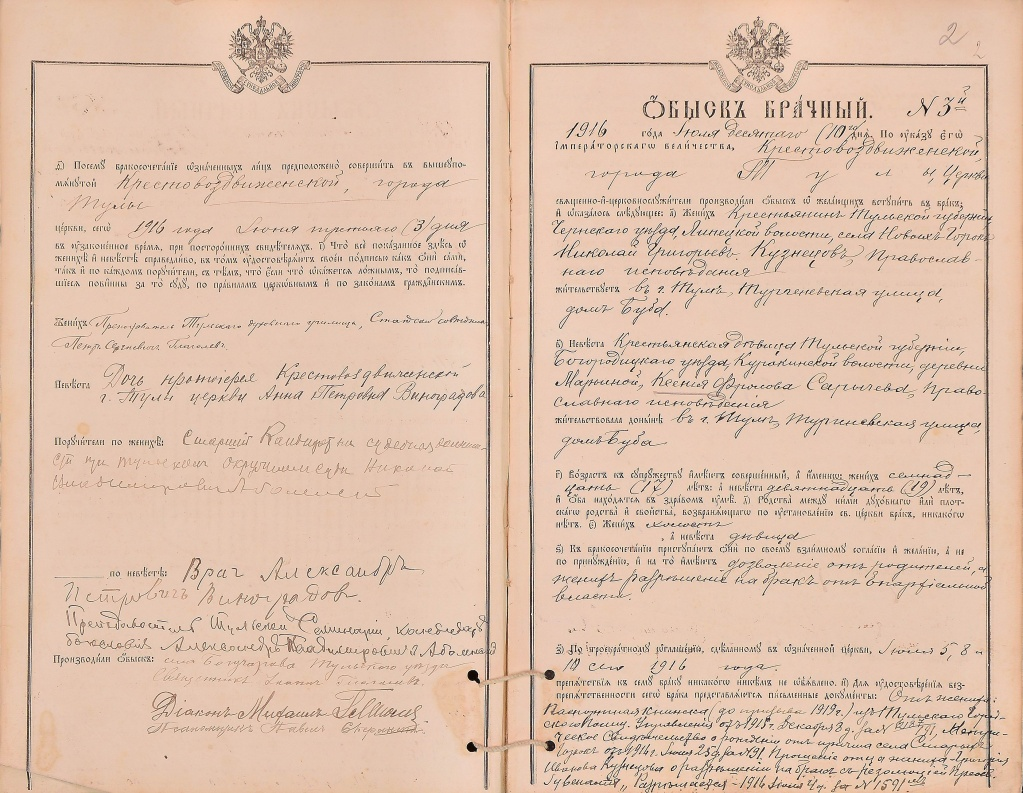 а҃) Посему бракосочетаніе означенныхъ лицъ предположено совершить въ вышеупо-
мянутой Крестовоздвиженской, города
Тулы
церкви, сего 1916 года Іюня третьяго (3) дня
въ узаконенное время, при постороннихъ свидѣтеляхъ. г҃) Что все показанное здѣсь о
женихѣ и невѣстѣ справедливо, въ томъ удостовѣряютъ своею подписью какъ они сами,
такъ и по каждомъ поручители, съ тѣмъ, что если что окажется ложнымъ, то подписав-
шіеся повинны за то суду, по правиламъ церковнымъ и по законамъ гражданскимъ.
Женихъ Преподаватель Тульскаго духовнаго училища, Статскій совѣтникъ
Петръ Сергѣевичъ Глаголевъ.
Невѣста Дочь протоіерея Крестовоздвиженской
г. Тулы церкви Анна Петровна Виноградова
Поручители по женихѣ: Старшій Кандидатъ на судебныя должно-
сти при Тульскомъ Окружномъ судѣ
по невѣстѣ: Врачъ Александръ
Петровичъ Виноградовъ.
Преподаватель Тульской Семинаріи, кандидатъ
богословія Александръ Владиміровичъ
Производили обыскъ: Тульскаго уѣзда
Священникъ
Діаконъ Михаилъ
Псаломщикъ Павелъ
2
2
Обыскъ брачный. N 3й
1916 года Іюля десятаго (10го) дня. По указу Его
Императорскаго Величества, Крестовоздвиженской,
города Тулы, Церкви
священно-и-церковнослужители производили обыскъ о желающихъ вступить въ бракъ;
и оказалось слѣдующее: а҃) Женихъ Крестьянинъ Тульской губерніи
Чернскаго уѣзда Липецкой волости, села Новыхъ Горокъ
Николай Григорьевъ Кузнецовъ, Православ-
наго исповѣданія
жительствуетъ въ г. Тулѣ, Тургеневская улица,
домъ Буба.
в҃) Невѣста Крестьянская дѣвица Тульской губерніи,
Богородицкаго уѣзда, Куракинской волости, деревни
Марьиной, Ксенія Фролова Сарычева, Право-
славнаго исповѣданія
жительствовала донынѣ въ г. Тулѣ, Тургеневская улица,
домъ Буба
г҃) Возрастъ къ супружеству имѣютъ совершенный, а именно: женихъ семнад-
цать (17) лѣтъ: а невѣста девятнадцать (19) лѣтъ,
и оба находятся въ здравомъ умѣ. д҃) Родства между ними духовнаго или плот-
скаго родства и свойства, возбраняющаго по установленію св. церкви бракъ, никакого
нѣтъ. е҃) Женихъ холостъ
, а невѣста дѣвица
ѕ҃) Къ бракосочетанію приступаютъ они по своему взаимному согласію и желанію, а не
по принужденію, и на то имѣютъ дозволеніе отъ родителей, а
женихъ разрѣшеніе на бракъ отъ Епархіальной
власти.
з҃) По троекратному оглашенію, сдѣланному въ означенной церкви, Іюля 5, 8 и
10 сего 1916 года.
препятствія къ сему браку никакого никѣмъ не объявлено. и҃) Для удостовѣренія без-
препятственности сего брака представляются письменные документы: Отъ жениха:
Паспортная книжка (до призыва 1919 г.) изъ Тульскаго Город-
ского Полиц. Управленія отъ Декабря 9 дня за N 91, Метри-
ческое Свидѣтельство о рожденіи отъ причта села Старыхъ
Горокъ отъ 1914 г. Іюня 25 д. за N 91. Прошеніе отца жениха Григорія
Иванова Кузнецова о разрѣшеніи на бракъ съ резолюціей Преос-
"Разрѣшается" – 1916 Іюня 4 д. за N 1591